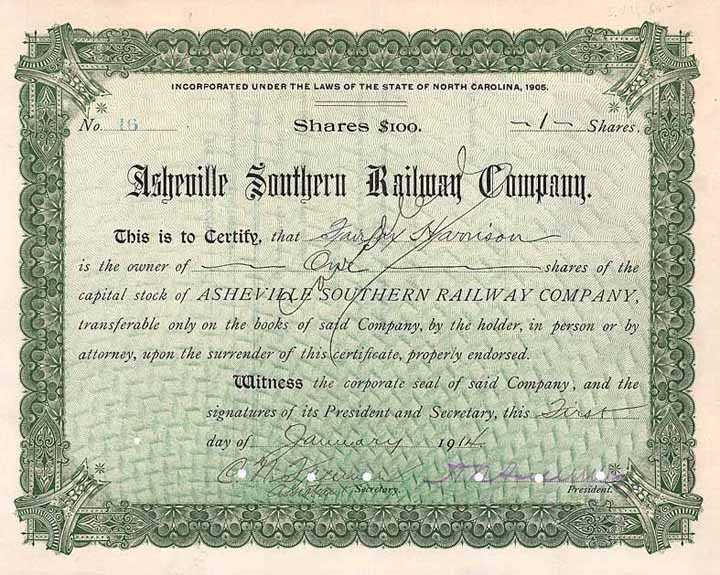 INCORPORATED UNDER THE LAWS OF THE STATE OF NORTH CAROLINA, 1905.
No. 16 Shares $100. 1 Shares.
Asheville Southern Railway Company.
This is to Certify, that Fairfax Harrison
is the owner of One shares of the
capital stock of ASHEVILLE SOUTHERN RAILWAY COMPANY,
transferable only on the books of said Company, by the holder, in person or by
attorney, upon the surrender of this certificate, properly endorsed.
Witness the corporate seal of said Company, and the
signatures of its President and Secretary, this First
day of January 1914
Assistant Secretary. President.